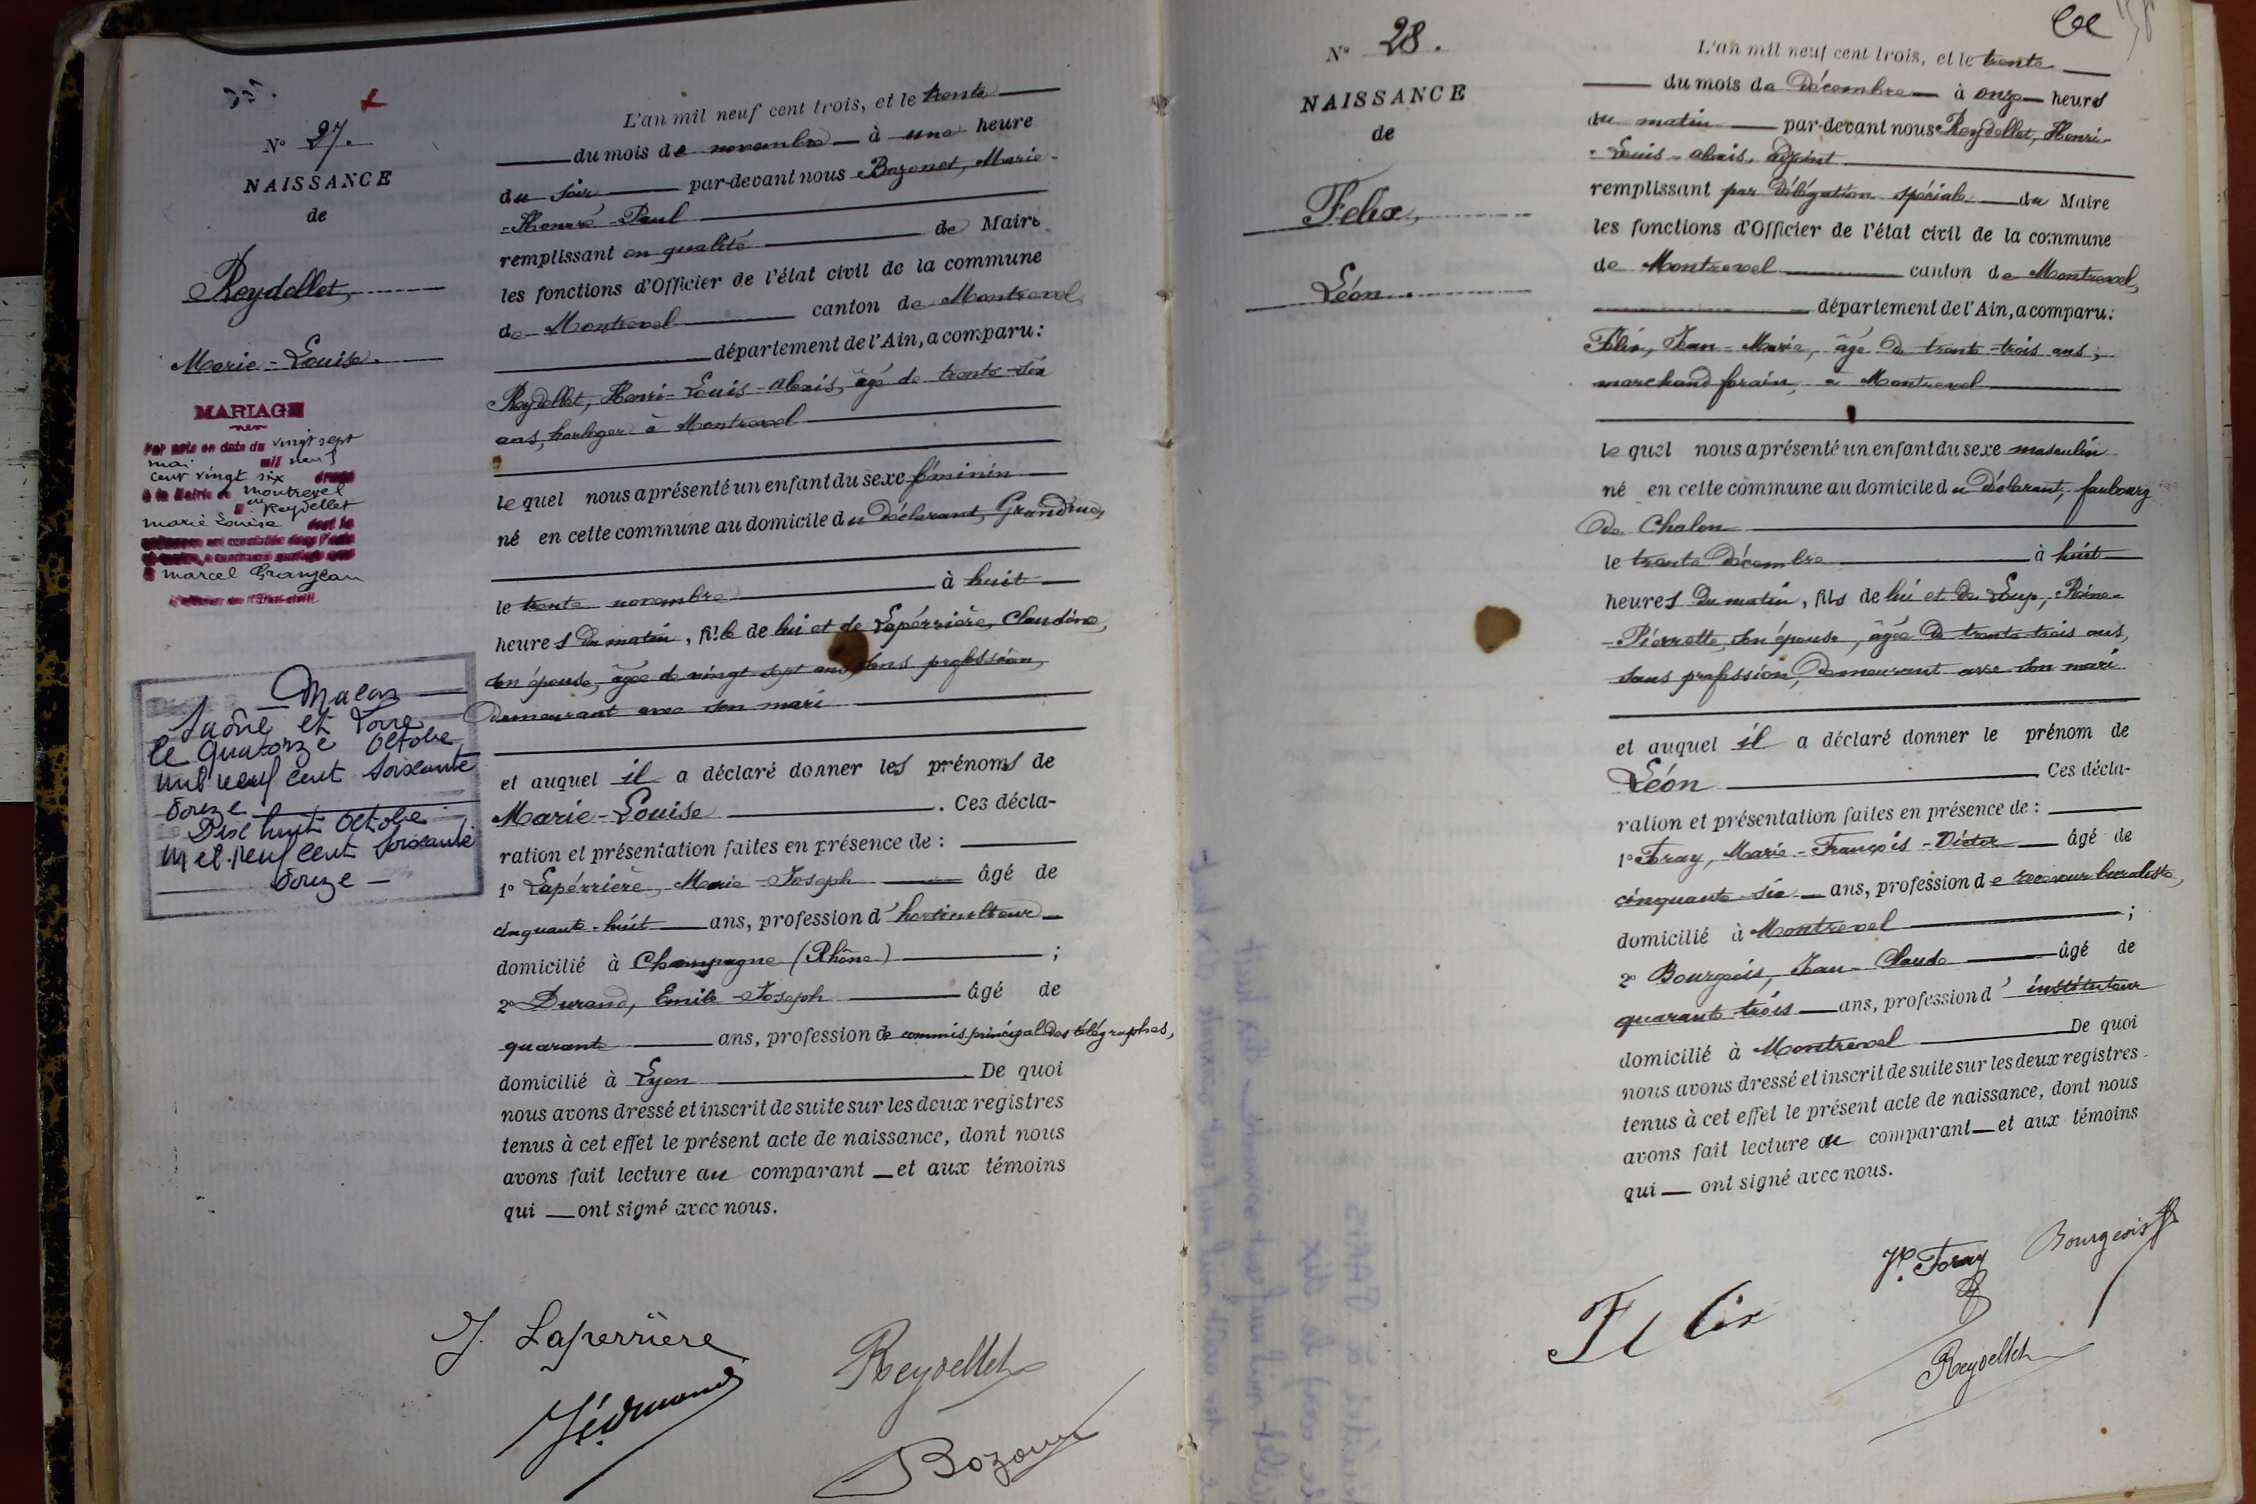 N° 27.
NAISSANCE
de
Reydellet,
Marie-Louise.
MARIAGE
Par acte en date du vingt sept
mai mil neuf
cent vingt six dressé
à la Mairie de Montrevel
Reydellet
Marie Louise dont la
Marcel Granjean
L'officier de l'Etat-civil
Macon
Saône et Loire
le quatorze Octobre
mil neuf cent soixante
douze
Dix huit Octobre
mil neuf cent soixante
douze
L'an mil neuf cent trois, et le trente
du mois de novembre à une heure
du soir par-devant nous Bozonet, Marie-
-Honoré-Paul
remplissant en qualité de Maire
les fonctions d'Officier de l'état civil de la commune
de Montrevel canton de Montrevel,
département de l'Ain, a comparu:
Reydellet, Henri-Louis-Alexis, âgé de trente-six
ans, horloger à Montrevel
le quel nous a présenté un enfant du sexe féminin
né en cette commune au domicile du déclarant, Grande rue,
le trente novembre à huit
heures du matin, fille de lui et de Lapérrière, Claudine,
son épouse, âgée de vingt sept ans, sans profession,
demeurant avec son mari
et auquel il a déclaré donner les prénoms de
Marie-Louise. Ces décla-
ration et présentation faites en présence de:
1° Lapérrière, Marie-Joseph âgé de
cinquante-huit ans, profession d'horticulteur
domicilié à Champagne (Rhône);
2° Durand, Emile-Joseph âgé de
quarante ans, profession de commis principal des télégraphes,
domicilié à Lyon De quoi
nous avons dressé et inscrit de suite sur les deux registres
tenus à cet effet le présent acte de naissance, dont nous
avons fait lecture au comparant et aux témoins
qui ont signé avec nous.
J. Laperrière
Reydellet
N° 28.
NAISSANCE
de
Felix,
Léon.
L'an mil neuf cent trois, et le trente
du mois de Décembre à onze heures
du matin par-devant nous Reydellet, Henri-
-Louis-Alexis, adjoint
remplissant par délégation spéciale du Maire
les fonctions d'Officier de l'état civil de la commune
de Montrevel canton de Montrevel,
département de l'Ain, a comparu:
Félix, Jean-Marie, âgé de trente-trois ans,
marchand forain, à Montrevel
le quel nous a présenté un enfant du sexe masculin
né en cette commune au domicile du déclarant, faubourg
de Chalon
le trente Décembre à huit
heures du matin, fils de lui et de Loup, Reine-
-Pierrette, son épouse, âgée de trente-trois ans,
sans profession, demeurant avec son mari
et auquel il a déclaré donner le prénom de
Léon Ces décla-
ration et présentation faites en présence de:
1° Foray, Marie-François-Victor âgé de
cinquante-six ans, profession de receveur buraliste,
domicilié à Montrevel;
2° Bourgeois, Jean-Claude âgé de
quarante trois ans, profession d'instituteur
domicilié à Montrevel De quoi
nous avons dressé et inscrit de suite sur les deux registres
tenus à cet effet le présent acte de naissance, dont nous
avons fait lecture au comparant et aux témoins
qui ont signé avec nous.
Foray Bourgeois
Félix
Reydellet